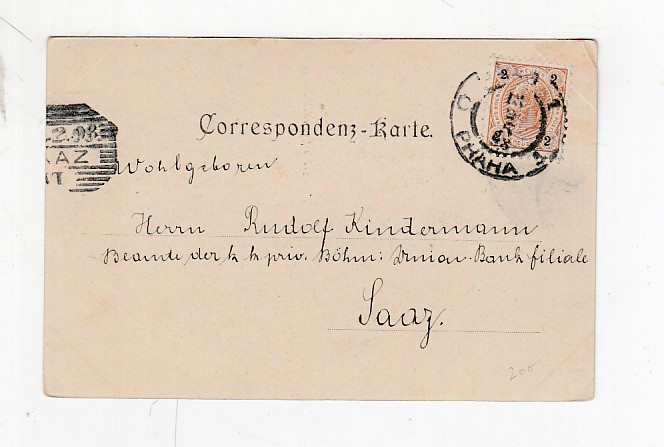 2 2
2
PRAHA 1
.2.98.
KAZ
Correspondenz-Karte.
Wohlgeboren
Herrn Rudolf Kindermann
Beamte der k k priv. Böhm: Union-Bank filiale
Saaz.
200